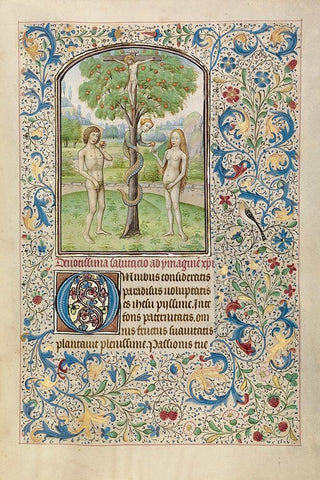 Deuotissima salutacio ad ymaginē xpi
Omnibus consideratis
paradisus voluptatis
es ihesu pyssime. Inte
fons paternitatis. om
nis fructus suauitatis
plantaue plenissime. Passionis tue